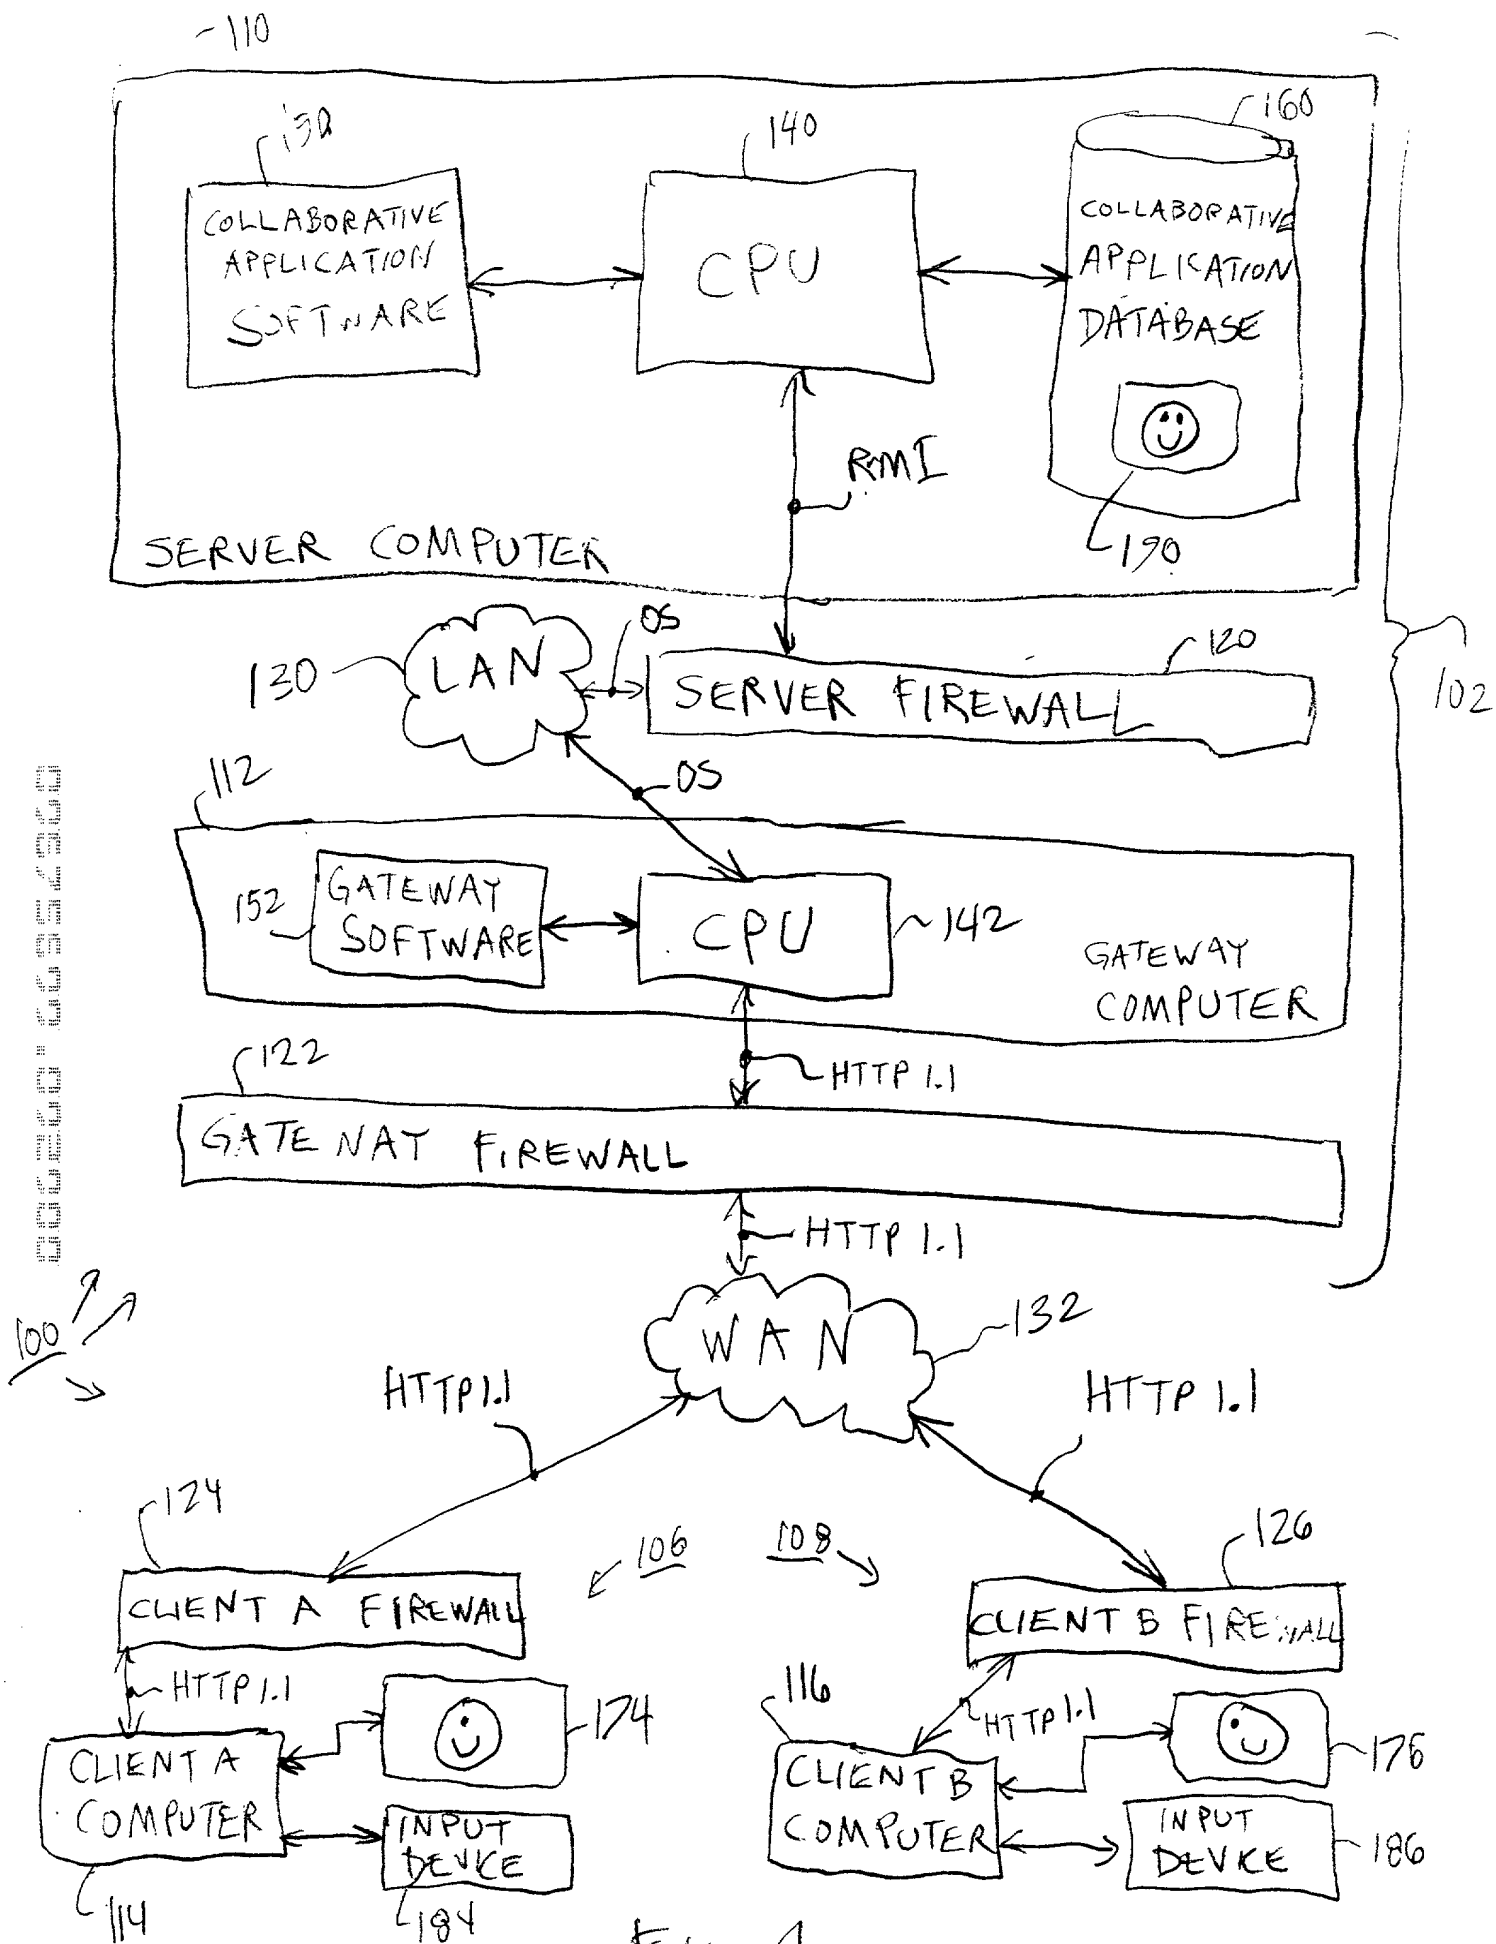 110
150
140
160
COLLABORATIVE
APPLICATION
SOFTWARE
CPU
COLLABORATIVE
APPLICATION
DATABASE
RMI
190
SERVER COMPUTER
OS
130
LAN
120
SERVER FIREWALL
102
112
OS
152
GATEWAY
SOFTWARE
CPU
142
GATEWAY
COMPUTER
122
HTTP 1.1
GATEWAY FIREWALL
HTTP 1.1
100
WAN
132
HTTP 1.1
HTTP 1.1
124
106
108
126
CLIENT A FIREWALL
CLIENT B FIREWALL
HTTP 1.1
174
116
HTTP 1.1
176
CLIENT A
COMPUTER
CLIENT B
COMPUTER
INPUT
DEVICE
INPUT
DEVICE
186
114
184